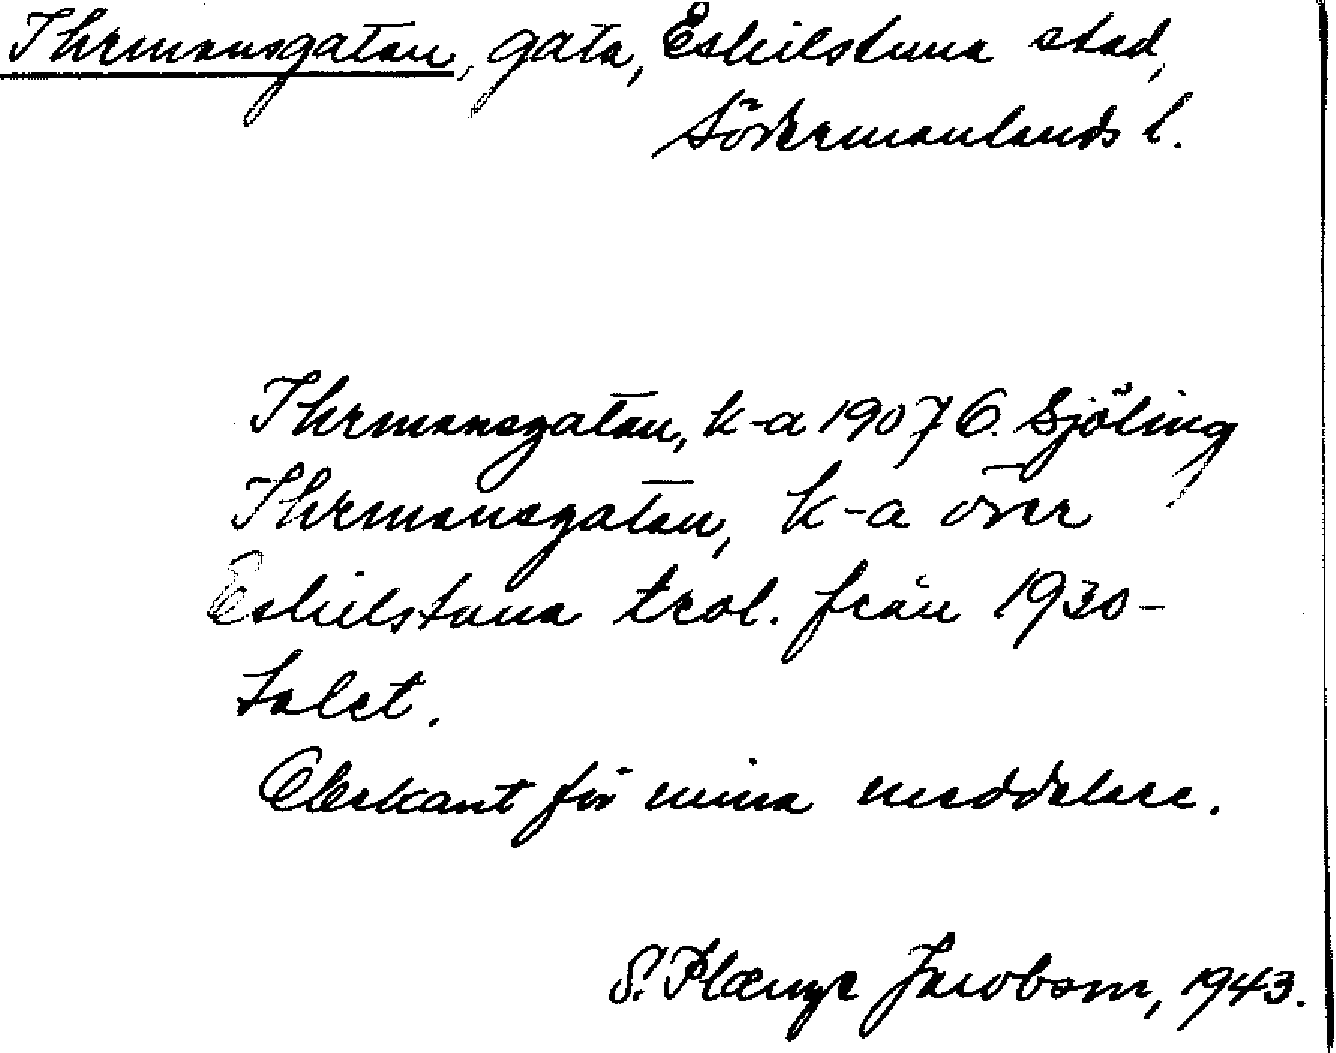 Ihrmansgatan, gata, Eskilstuna stad,
Södermanlands l.
Ihrmansgatan, k-a 1907 G. Sjöling
Ihrmansgatan, k-a över
Eskilstuna trol. från 1930-
talet.
Obekant för mina meddelare.
S. Plænge Jacobson, 1943.